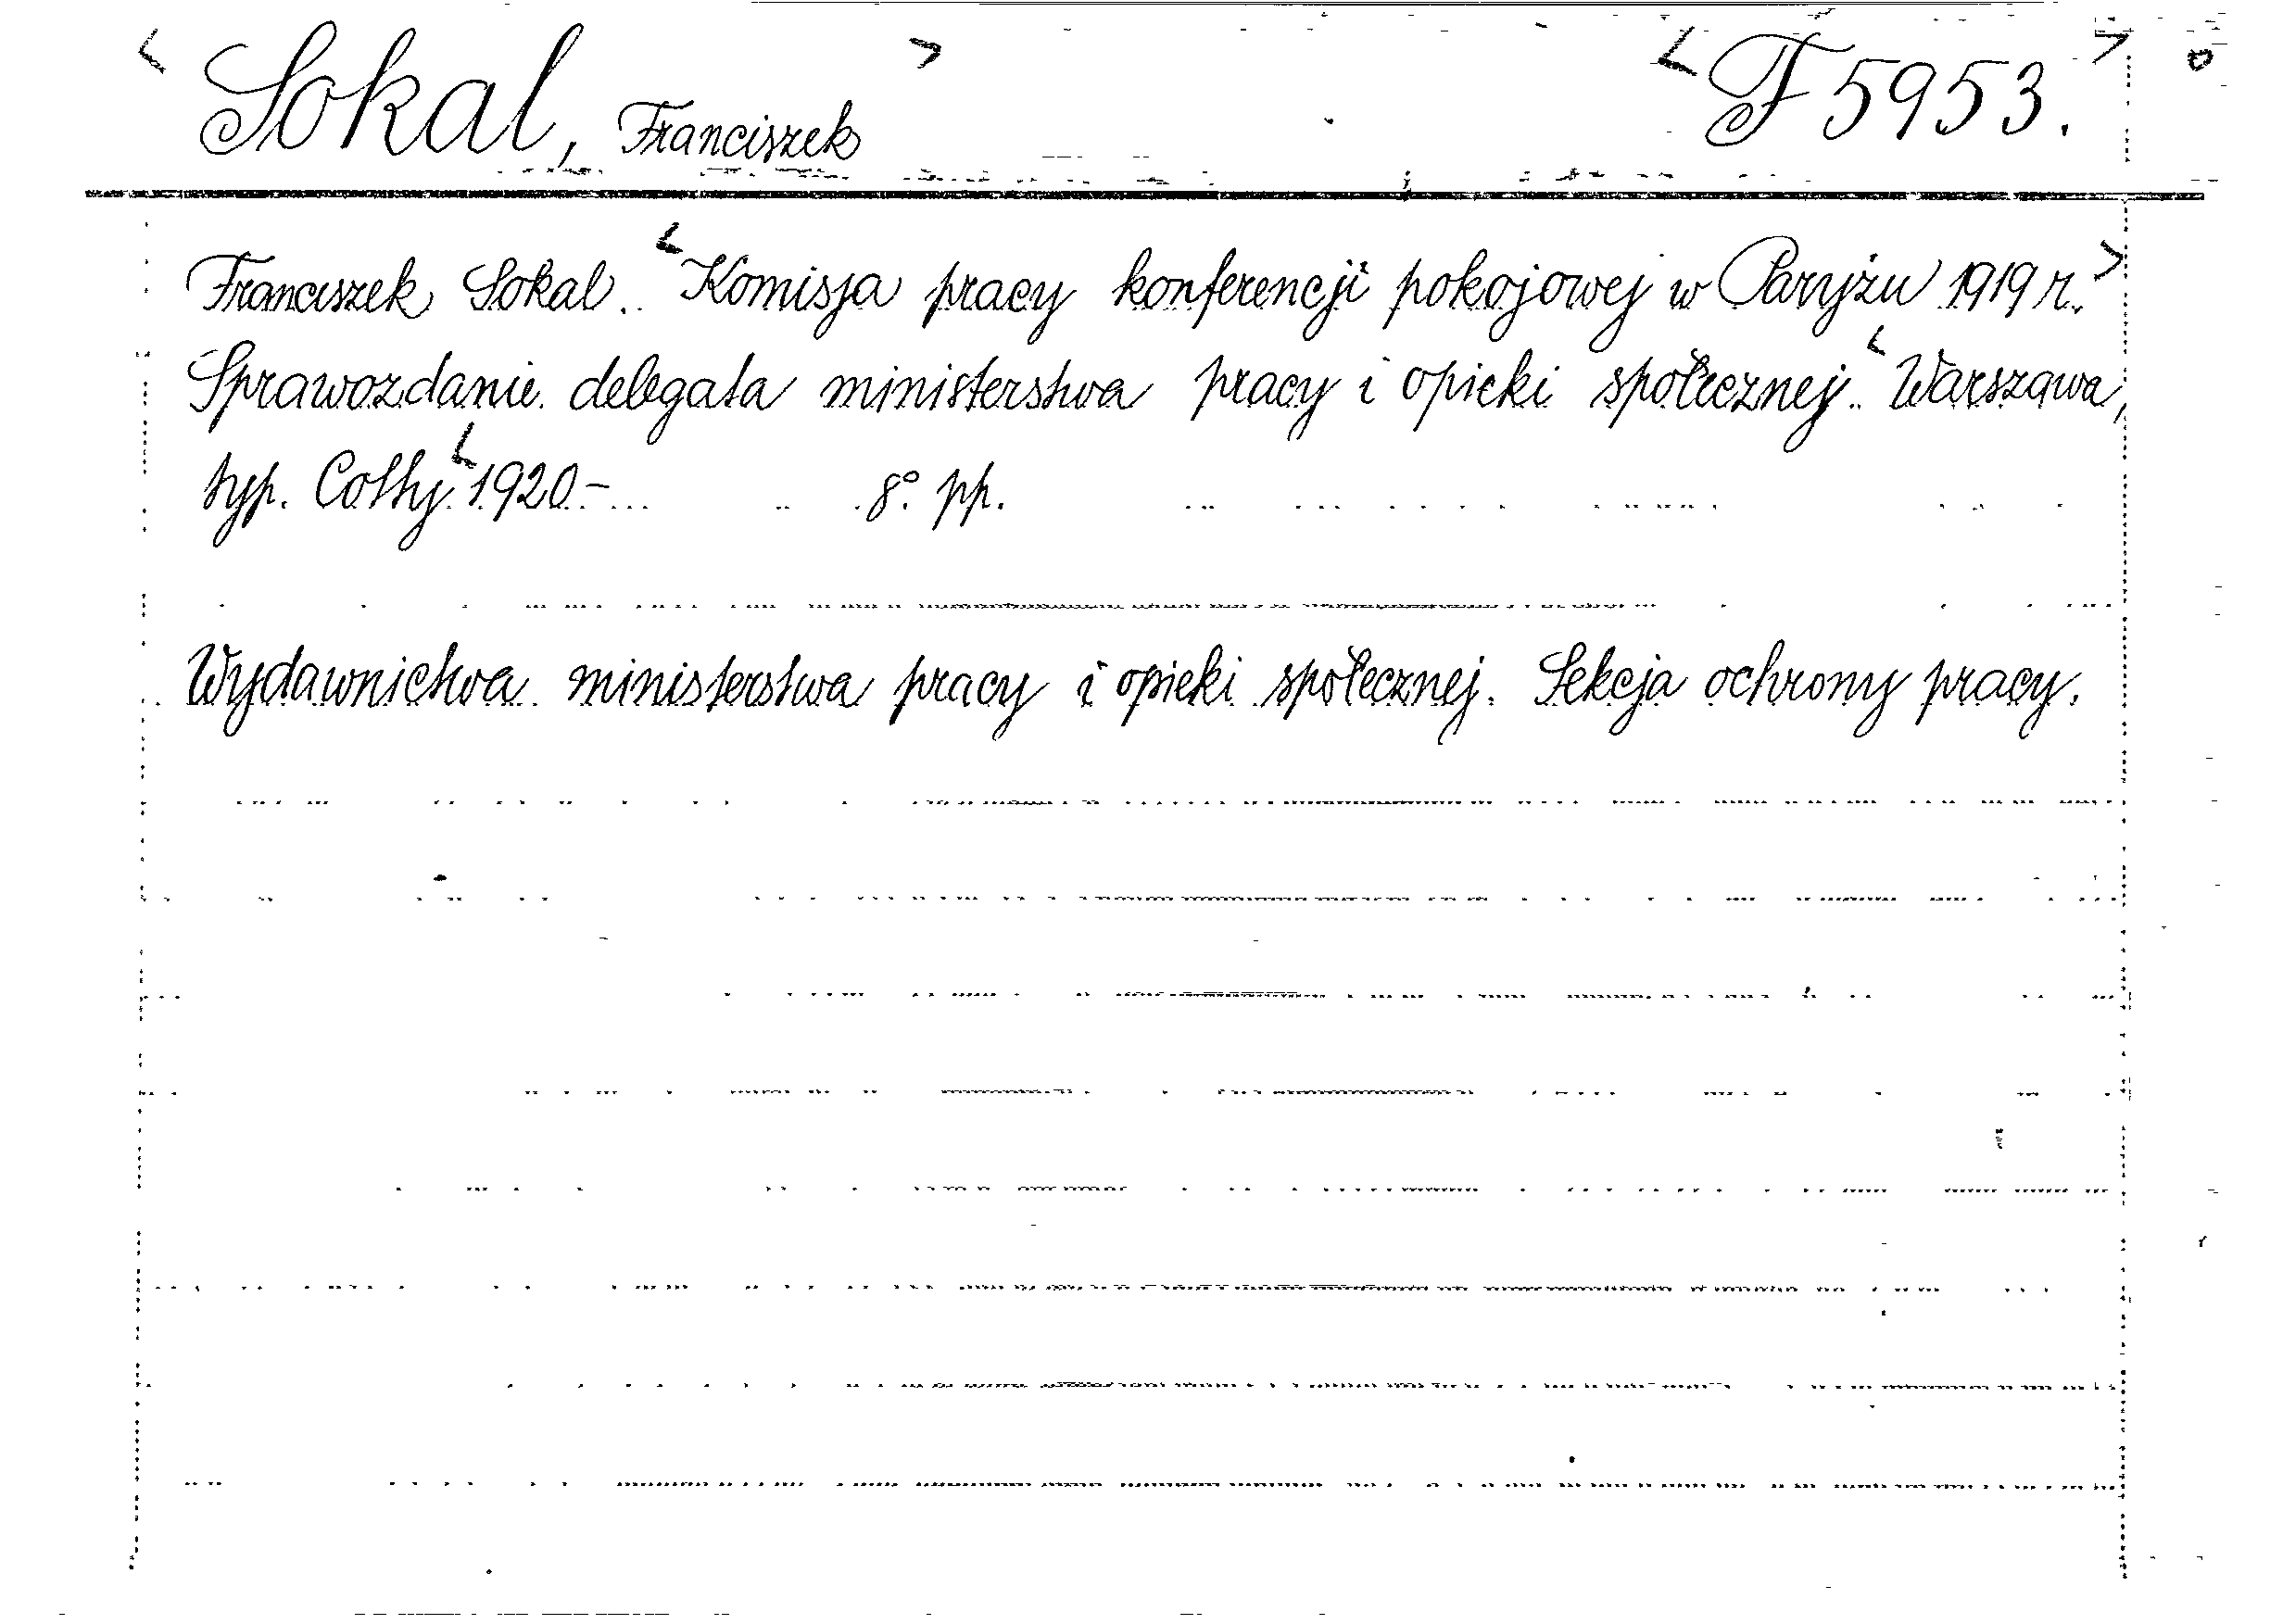 Sokal, Franciszek F 5953.
Franciszek Sokal. Komisja pracy konferencji pokojowej w Paryżu 1919 r.
Sprawozdanie delegata ministerstwa pracy i opieki społecznej. Warszawa,
typ. Cotty. 1920.- 8° pp.
Wydawnictwa ministerstwa pracy i opieki społecznej. Sekcja ochrony pracy.